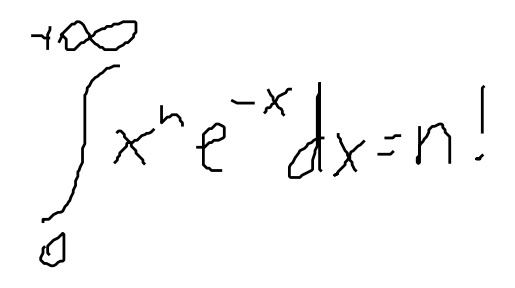 ∫₀^{+∞} xⁿ e^{-x} dx = n!